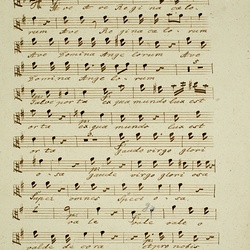 Ave Ave Regina caelo
rum Ave Regina caelo rum
Ave Domina Ange lorum Ave
Domina Ange lo rum
Salve porta ex qua mundo lux est
orta ex qua mundo lux est
orta Gaude virgo glori
o sa gaude virgo glori osa
super omnes speci o sa
va le vale vale o
valde de cora et pro nobis